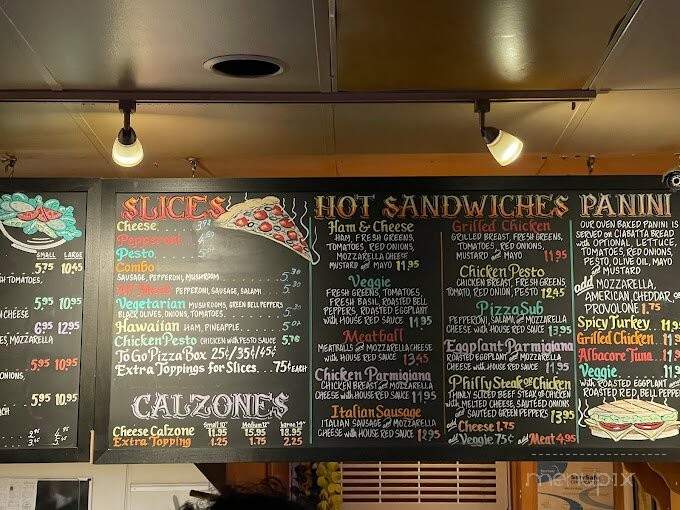 SMALL LARGE
5.75 10.45
TOMATOES,
5.95 10.95
CHEESE
6.95 12.95
MOZZARELLA
5.95 10.95
ONIONS,
5.95 10.95
SLICES
Cheese
Pepperoni
Pesto
Combo
SAUSAGE, PEPPERONI, MUSHROOM
PEPPERONI, SAUSAGE, SALAMI
Vegetarian MUSHROOMS, GREEN BELL PEPPERS
BLACK OLIVES, ONIONS, TOMATOES
Hawaiian HAM, PINEAPPLE
Chicken Pesto CHICKEN WITH PESTO SAUCE 5.76
To Go Pizza Box 25¢/35¢/45¢
Extra Toppings for Slices... 75¢ each
CALZONES
Small 10" Medium 12" Large 14"
Cheese Calzone 11.95 15.95 18.95
Extra Topping 1.25 1.75 2.25
HOT SANDWICHES
Ham & Cheese
HAM, FRESH GREENS,
TOMATOES, RED ONIONS,
MOZZARELLA CHEESE
MUSTARD and MAYO 11.95
Veggie
FRESH GREENS, TOMATOES,
FRESH BASIL, ROASTED BELL
PEPPERS, ROASTED EGGPLANT
with HOUSE RED SAUCE 11.95
Meatball
MEATBALLS and MOZZARELLA CHEESE
with HOUSE RED SAUCE 13.45
Chicken Parmigiana
CHICKEN BREAST and MOZZARELLA
CHEESE with HOUSE RED SAUCE 11.95
Italian Sausage
ITALIAN SAUSAGE and MOZZARELLA
CHEESE with HOUSE RED SAUCE 12.95
Grilled Chicken
GRILLED BREAST, FRESH GREENS,
TOMATOES, RED ONIONS,
MUSTARD and MAYO 11.95
Chicken Pesto
CHICKEN BREAST, FRESH GREENS
TOMATO, RED ONION, PESTO 12.45
Pizza Sub
PEPPERONI, SALAMI, and MOZZARELLA
CHEESE with HOUSE RED SAUCE 13.95
Eggplant Parmigiana
ROASTED EGGPLANT and MOZZARELLA
CHEESE with HOUSE RED SAUCE 11.95
Philly Steak or Chicken
THINLY SLICED BEEF STEAK or CHICKEN
with MELTED CHEESE, SAUTÉED ONIONS
and SAUTÉED GREEN PEPPERS 13.95
add Cheese 1.75
add Veggie 75¢ add Meat 4.95
PANINI
OUR OVEN BAKED PANINI IS
SERVED on CIABATTA BREAD
with OPTIONAL LETTUCE,
TOMATOES, RED ONIONS,
PESTO, OLIVE OIL, MAYO
and MUSTARD
add MOZZARELLA,
AMERICAN, CHEDDAR, or
PROVOLONE 1.75
Spicy Turkey
Grilled Chicken
Albacore Tuna
Veggie
with ROASTED EGGPLANT and
ROASTED RED BELL PEPPER
menupix